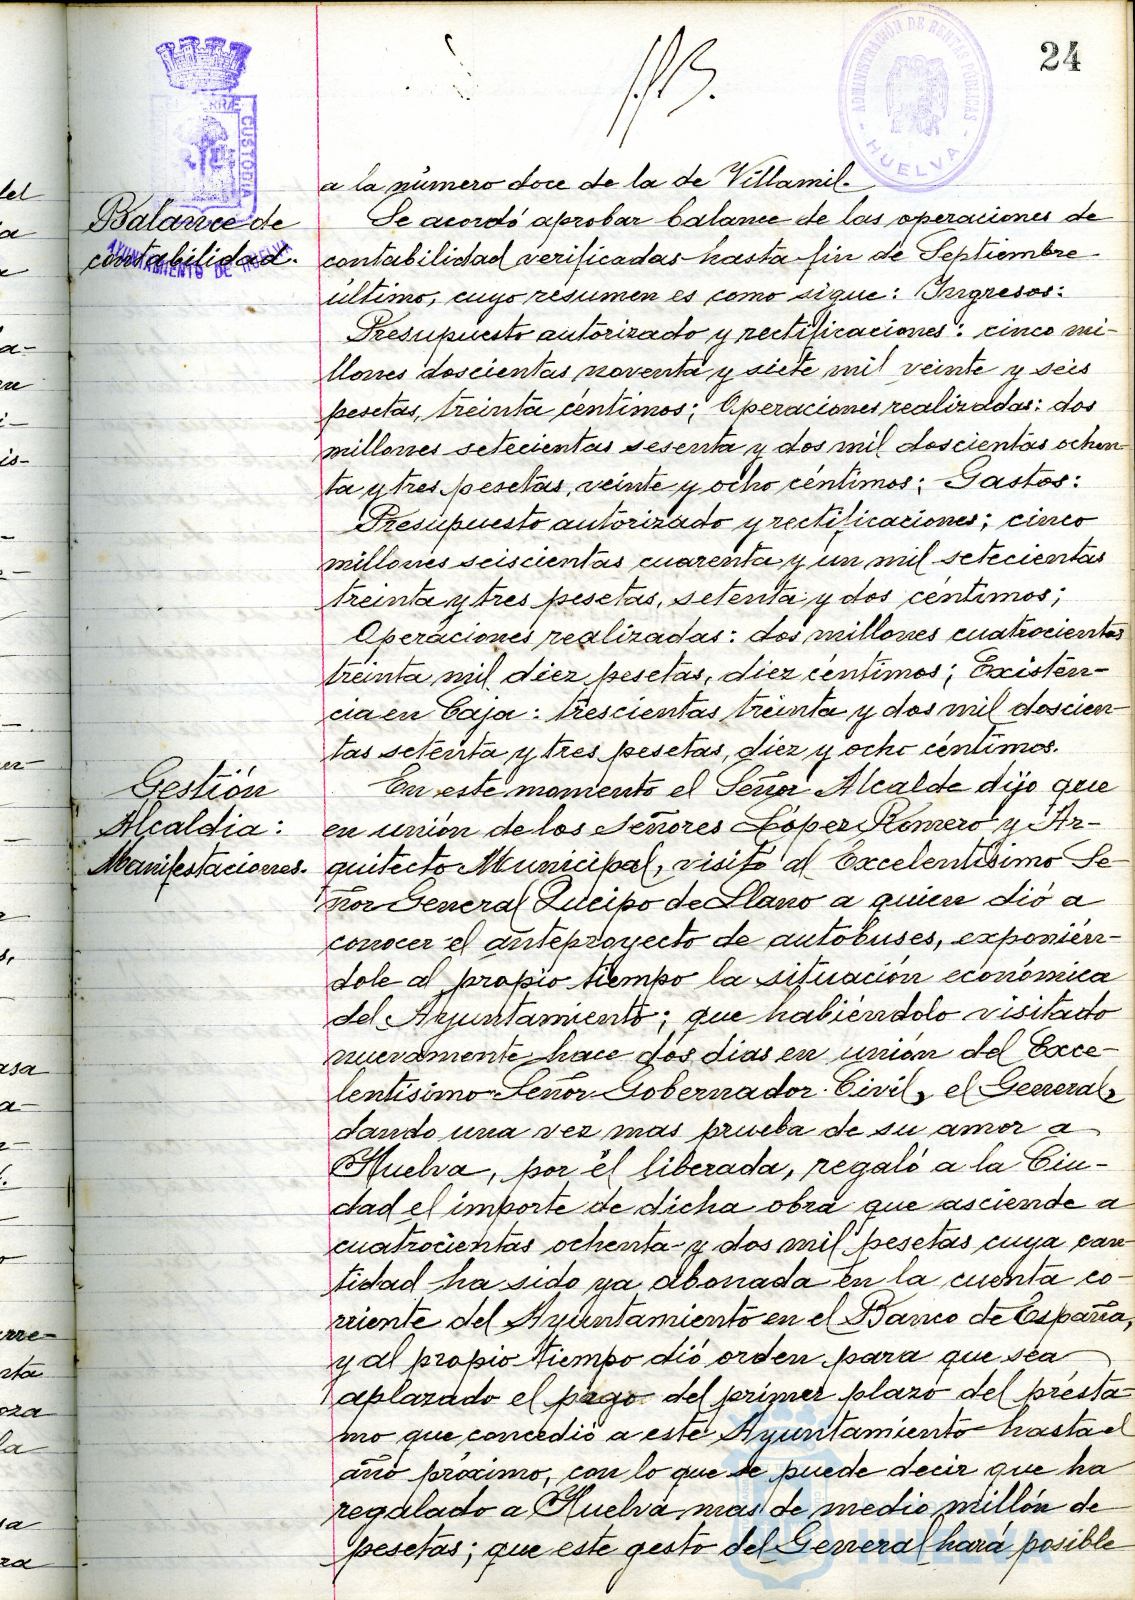 24
PORTUS MARIS ET TERRÆ CUSTODIA
AYUNTAMIENTO DE HUELVA
ADMINISTRACIÓN DE RENTAS PÚBLICAS
- HUELVA -
a la número doce de la de Villamil.
Balance de
contabilidad.
Se acordó aprobar balance de las operaciones de
contabilidad verificadas hasta fin de Septiembre
último, cuyo resumen es como sigue: Ingresos:
Presupuesto autorizado y rectificaciones: cinco mi-
llones doscientas noventa y siete mil veinte y seis
pesetas, treinta céntimos; Operaciones realizadas: dos
millones setecientas sesenta y dos mil doscientas ochen-
ta y tres pesetas, veinte y ocho céntimos; Gastos:
Presupuesto autorizado y rectificaciones; cinco
millones seiscientas cuarenta y un mil setecientas
treinta y tres pesetas, setenta y dos céntimos;
Operaciones realizadas: dos millones cuatrocientas
treinta mil diez pesetas, diez céntimos; Existen-
cia en Caja: trescientas treinta y dos mil doscien-
tas setenta y tres pesetas, diez y ocho céntimos.
Gestión
Alcaldia:
Manifestaciones.
En este momento el Señor Alcalde dijo que
en unión de los Señores López Romero y Ar-
quitecto Municipal, visitó al Excelentísimo Se-
ñor General Queipo de Llano a quien dió a
conocer el anteproyecto de autobuses, exponién-
dole al propio tiempo la situación económica
del Ayuntamiento; que habiéndolo visitado
nuevamente hace dos dias en unión del Exce-
lentísimo Señor Gobernador Civil, el General,
dando una vez mas prueba de su amor a
Huelva, por él liberada, regaló a la Ciu-
dad el importe de dicha obra que asciende a
cuatrocientas ochenta y dos mil pesetas cuya can-
tidad ha sido ya abonada en la cuenta co-
rriente del Ayuntamiento en el Banco de España,
y al propio tiempo dió orden para que sea
aplazado el pago del primer plazo del présta-
mo que concedió a este Ayuntamiento hasta el
año próximo, con lo que se puede decir que ha
regalado a Huelva mas de medio millón de
pesetas; que este gesto del General hará posible
HUELVA